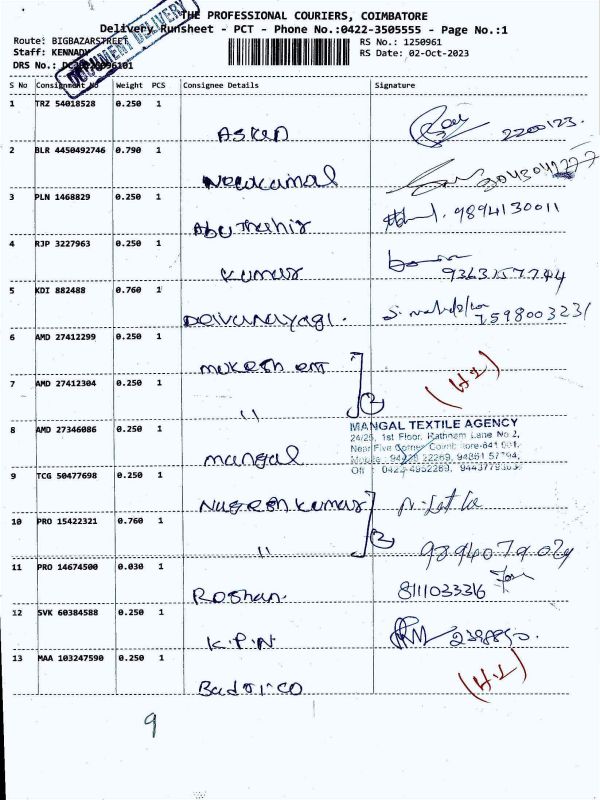 THE PROFESSIONAL COURIERS, COIMBATORE
Delivery Runsheet - PCT - Phone No.:0422-3505555 - Page No.:1
Route: BIGBAZARSTREET
RS No.: 1250961
Staff: KENNADY
RS Date: 02-Oct-2023
DOCUMENT DELIVERY
DRS No.:
S No Consignment No Weight PCS Consignee Details Signature
1 TRZ 54018528 0.250 1
2200123.
2 BLR 4450492746 0.790 1
Neelkamal
3 PLN 1468829 0.250 1
Abu Thahir 9894130011
4 RJP 3227963 0.250 1
Kumar
5 KDI 882488 0.760 1
Deivanayagi. 7598003231
6 AMD 27412299 0.250 1
Mukesh ent
7 AMD 27412304 0.250 1
2 (H-2)
"
8 AMD 27346086 0.250 1
MANGAL TEXTILE AGENCY
24/25, 1st Floor, Rathnam Lane No 2,
Near Five Corner, Coimbatore-641 001.
Mangal
9 TCG 50477698 0.250 1
Nagesh Kumar
10 PRO 15422321 0.760 1
2
"
11 PRO 14674500 0.030 1
Roshan. 8111033316
12 SVK 60384588 0.250 1
K.P.N
13 MAA 103247590 0.250 1
(H-2)
9